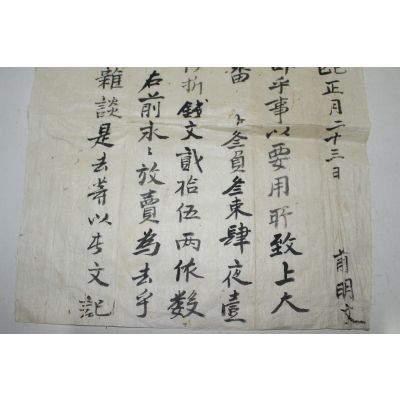 巳正月二十三日
前明文
乎事以要用所致上大
畓 卜叄負叄束肆夜壹
折錢文貳拾伍兩依数
右前永〻放賣為去乎
雜談是去等以此文記